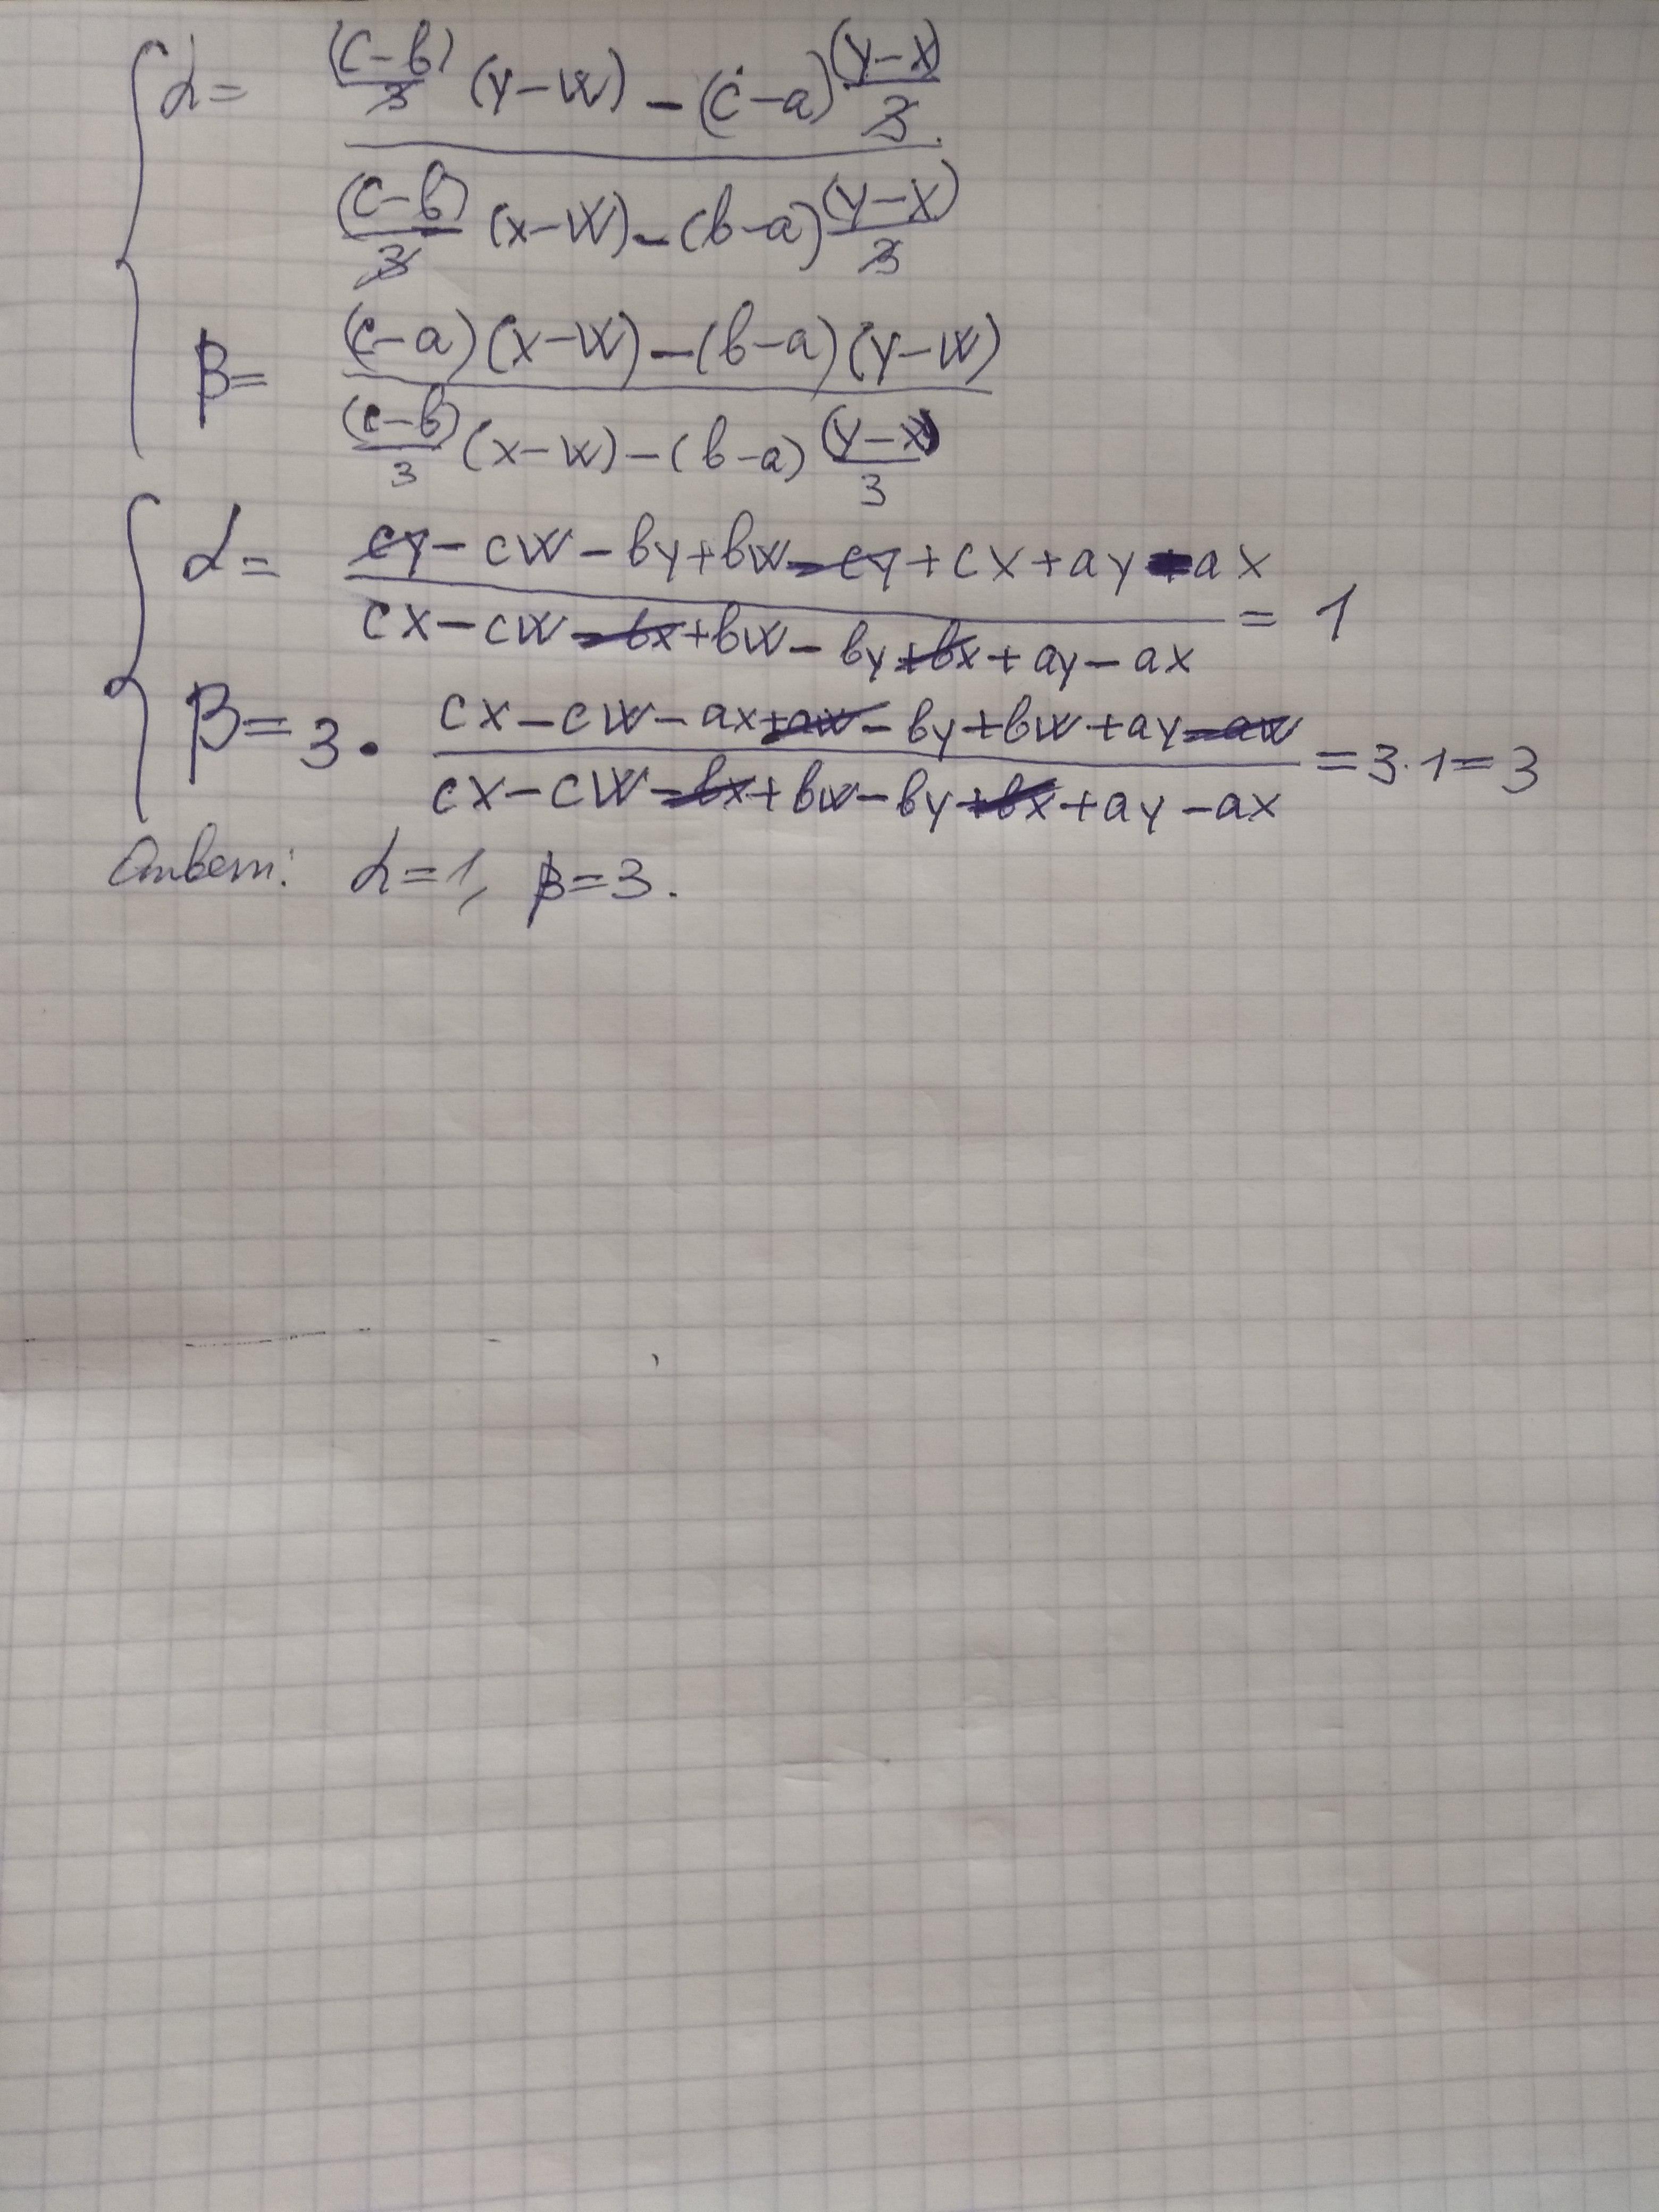 α = ((c-b)/3 (y-w) - (c-a) (y-x)/3) / ((c-b)/3 (x-w) - (b-a) (y-x)/3)
β = ((c-a)(x-w) - (b-a)(y-w)) / ((c-b)/3 (x-w) - (b-a) (y-x)/3)
α = (cy - cw - by + bw - cy + cx + ay - ax) / (cx - cw - bx + bw - by + bx + ay - ax) = 1
β = 3 · (cx - cw - ax + aw - by + bw + ay - aw) / (cx - cw - bx + bw - by + bx + ay - ax) = 3·1 = 3
Ответ: α=1, β=3.